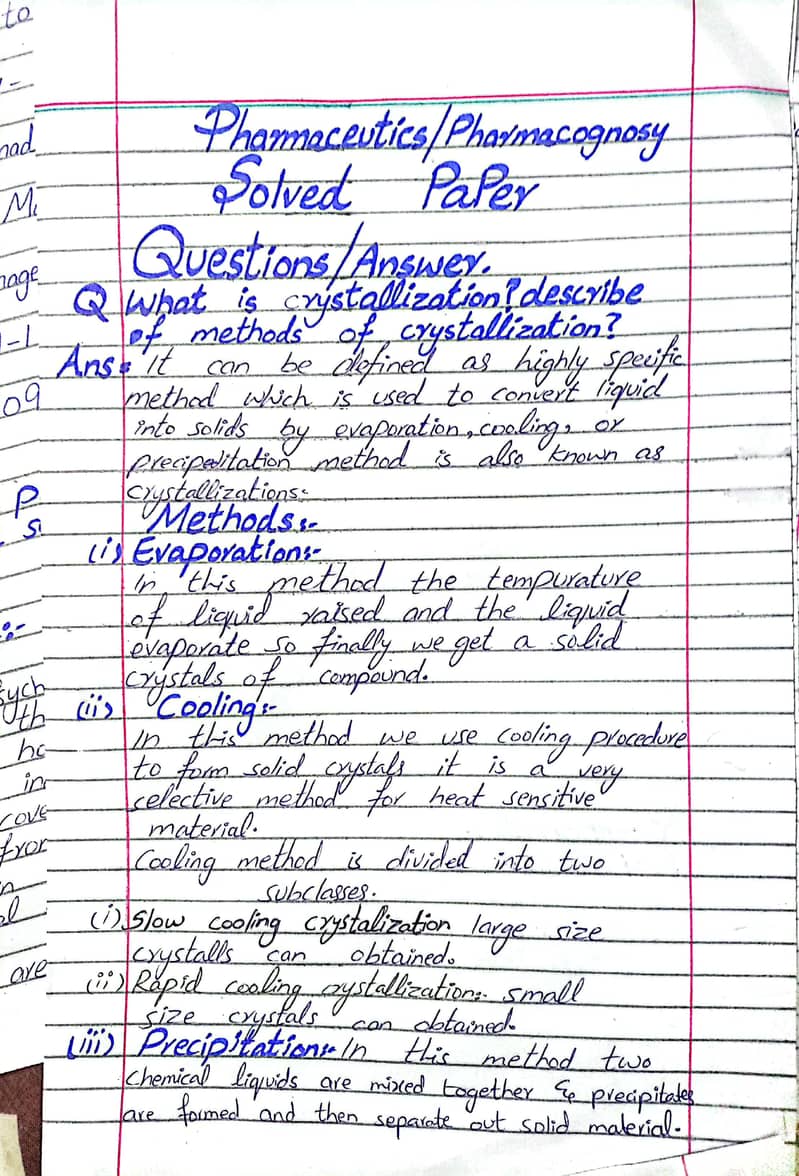 Pharmaceutics/Pharmacognosy
Solved PaPer
Questions/Answer.
Q What is crystallization? describe
of methods of crystallization?
Ans: It can be defined as highly specific
method which is used to convert liquid
into solids by evaporation, cooling, or
precipeditation method is also known as
crystallizations:
Methods:-
(i) Evaporation:-
In this method the tempurature
of liquid raised and the liquid
evaporate so finally we get a solid
crystals of compound.
(ii) Cooling:-
In this method we use cooling procedure
to form solid crystals it is a very
selective method for heat sensitive
material.
Cooling method is divided into two
subclasses.
(i) Slow cooling crystalization large size
crystalls can obtained.
(ii) Rapid cooling crystallization:- small
size crystals can obtained.
(iii) Precipitation:- In this method two
chemical liquids are mixed together & precipitates
are formed and then separate out solid material.
to
nad
M
nage
-1
09
P
S
:-
sych
th
ho
in
cove
from
n
el
are